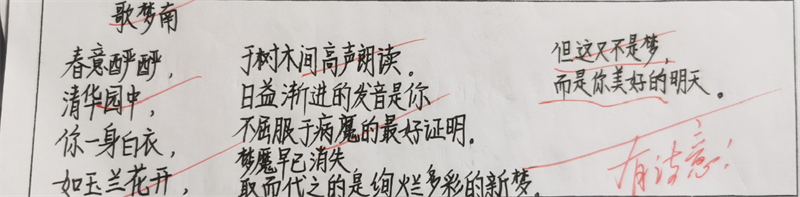 歌梦南
春意酽酽，
清华园中，
你一身白衣，
如玉兰花开，
于树木间高声朗读。
日益渐进的发音是你
不屈服于病魔的最好证明。
梦魇早已消失
取而代之的是绚烂多彩的新梦。
但这又不是梦，
而是你美好的明天。
有诗意！